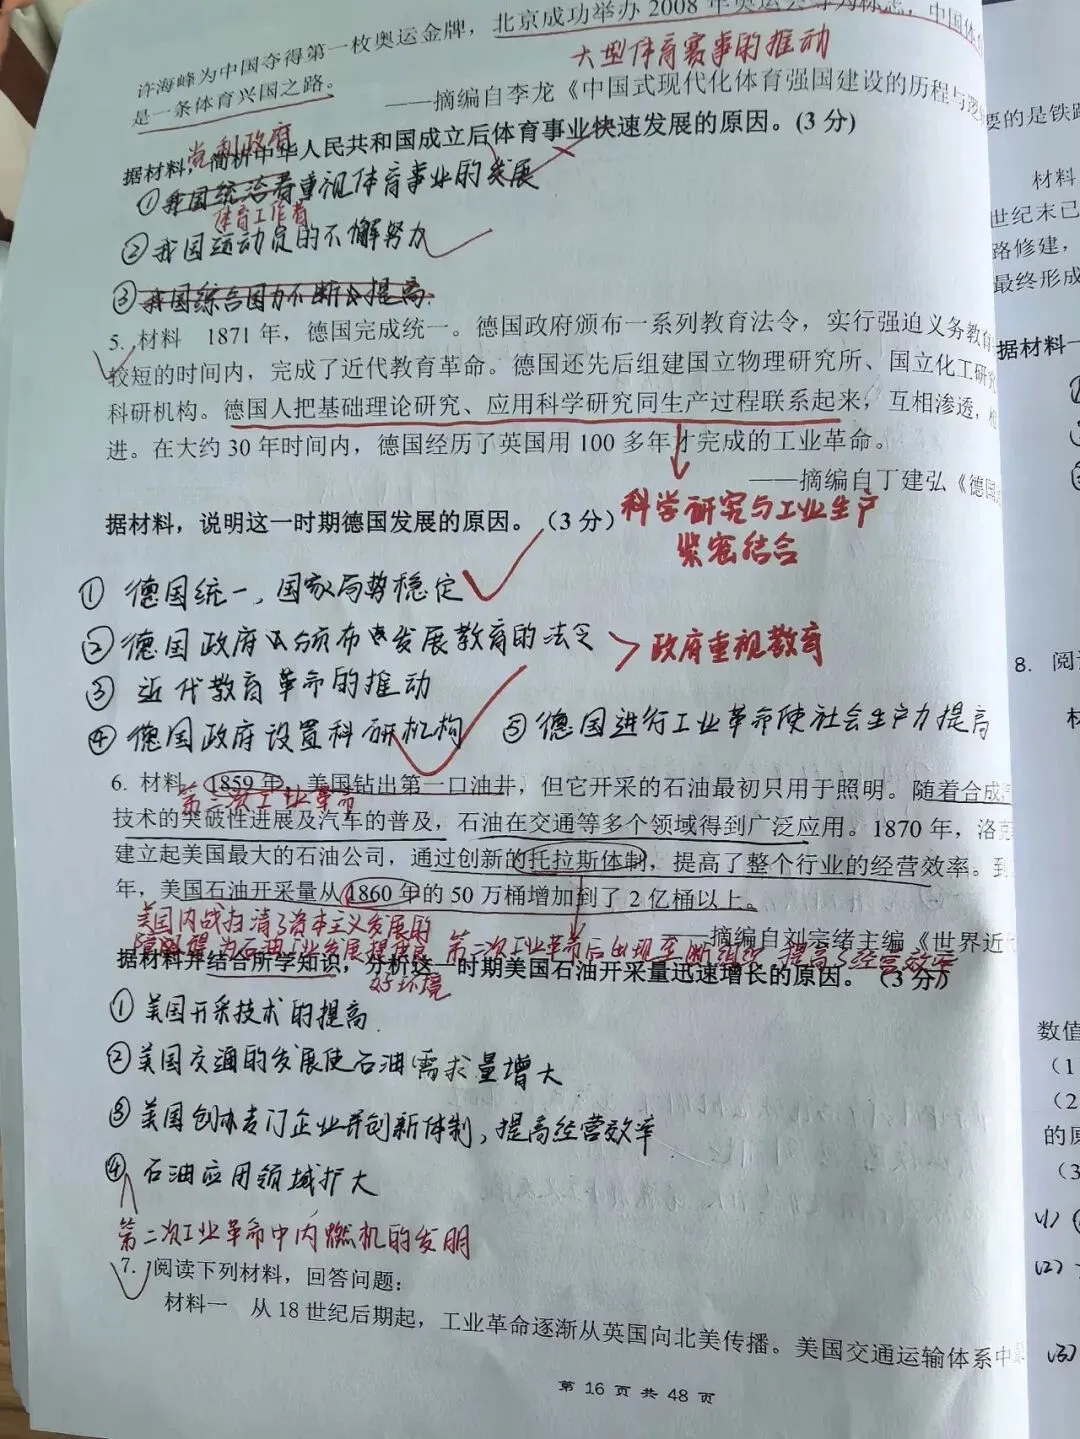 许海峰为中国夺得第一枚奥运金牌，北京成功举办2008年奥运会等为标志，中国体
是一条体育兴国之路。
大型体育赛事的推动
——摘编自李龙《中国式现代化体育强国建设的历程与逻
党和政府
据材料，简析中华人民共和国成立后体育事业快速发展的原因。(3分)
①我国统治者重视体育事业的发展
体育工作者
②我国运动员的不懈努力
③我国综合国力不断提高.
5. 材料 1871年，德国完成统一。德国政府颁布一系列教育法令，实行强迫义务教育
较短的时间内，完成了近代教育革命。德国还先后组建国立物理研究所、国立化工研究
科研机构。德国人把基础理论研究、应用科学研究同生产过程联系起来，互相渗透，相
进。在大约30年时间内，德国经历了英国用100多年才完成的工业革命。
——摘编自丁建弘《德国
据材料，说明这一时期德国发展的原因。（3分）
科学研究与工业生产
紧密结合
① 德国统一，国家局势稳定
② 德国政府颁布发展教育的法令
政府重视教育
③ 近代教育革命的推动
④ 德国政府设置科研机构 ⑤德国进行工业革命使社会生产力提高
6. 材料 1859年，美国钻出第一口油井，但它开采的石油最初只用于照明。随着合成
第二次工业革命
技术的突破性进展及汽车的普及，石油在交通等多个领域得到广泛应用。1870年，洛克
建立起美国最大的石油公司，通过创新的托拉斯体制，提高了整个行业的经营效率。到
年，美国石油开采量从1860年的50万桶增加到了2亿桶以上。
美国内战扫清了资本主义发展的
——摘编自刘宗绪主编《世界近
为石油工业发展提供良
好环境
第二次工业革命后出现垄断组织 提高了经营效率
据材料并结合所学知识，分析这一时期美国石油开采量迅速增长的原因。（3分）
① 美国开采技术的提高
② 美国交通的发展使石油需求量增大
③ 美国创办专门企业并创新体制，提高经营效率
④ 石油应用领域扩大
第二次工业革命中内燃机的发明
7. 阅读下列材料，回答问题：
材料一 从18世纪后期起，工业革命逐渐从英国向北美传播。美国交通运输体系中
第 16 页 共 48 页
要的是铁路
材料
世纪末已
路修建，
最终形成
据材料一
8. 阅
数值
（1
（2
的原
（3
(1)
(2)
(3)